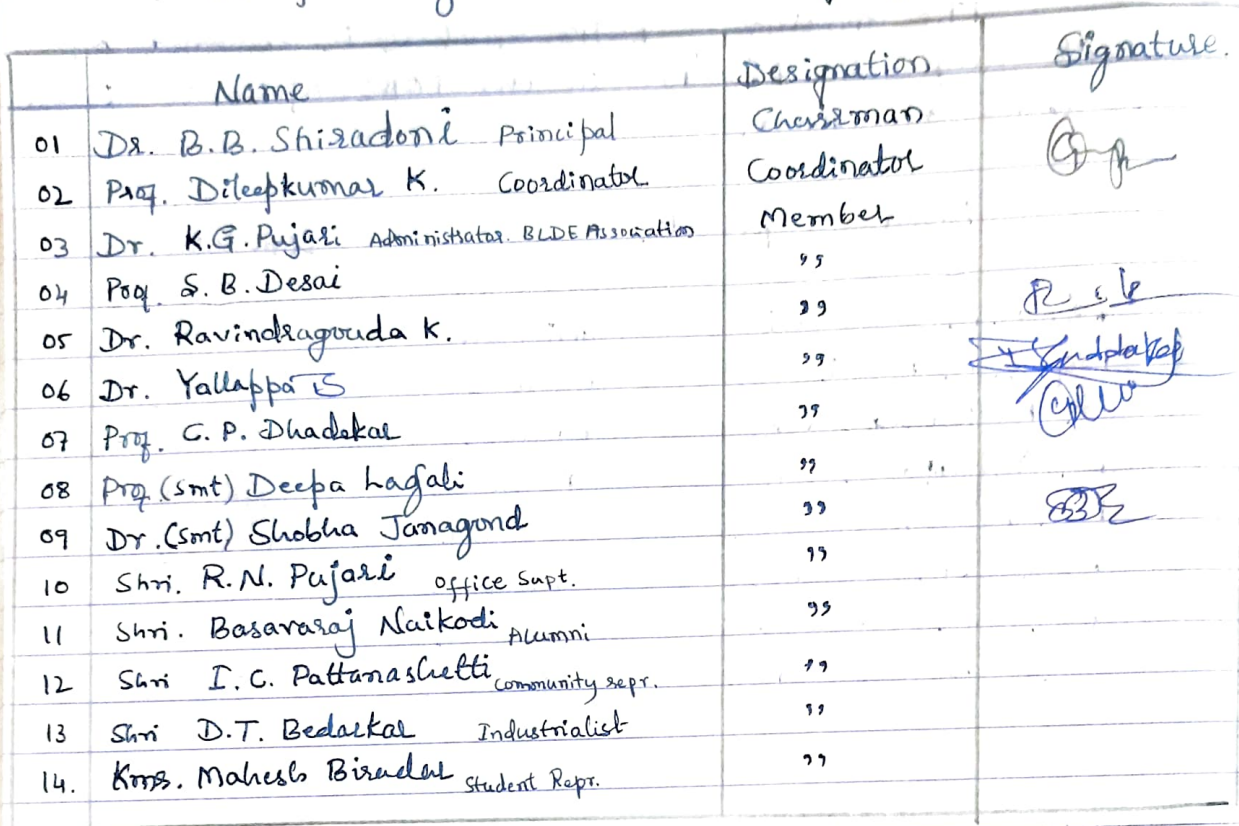 Name Designation Signature.
01 Dr. B.B. Shiradoni Principal Chairman
02 Prof. Dileepkumar K. Coordinator Coordinator
03 Dr. K.G. Pujari Administrator BLDE Association Member
04 Prof. S. B. Desai ,,
05 Dr. Ravindragouda K. ,,
06 Dr. Yallappa S ,,
07 Prof. C. P. Dhadekar ,,
08 Prof (smt) Deepa Lagali ,,
09 Dr. (smt) Shobha Janagond ,,
10 Shri. R.N. Pujari office Supt. ,,
11 Shri. Basavaraj Naikodi Alumni ,,
12 Shri I. C. Pattanashetti community repr. ,,
13 Shri D.T. Bedarkar Industrialist ,,
14. Mahesh Biradar Student Repr. ,,